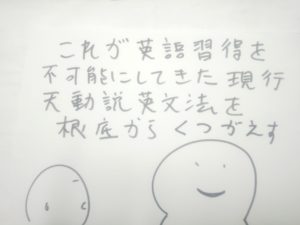 これが英語習得を
不可能にしてきた現行
天動説英文法を
根底からくつがえす